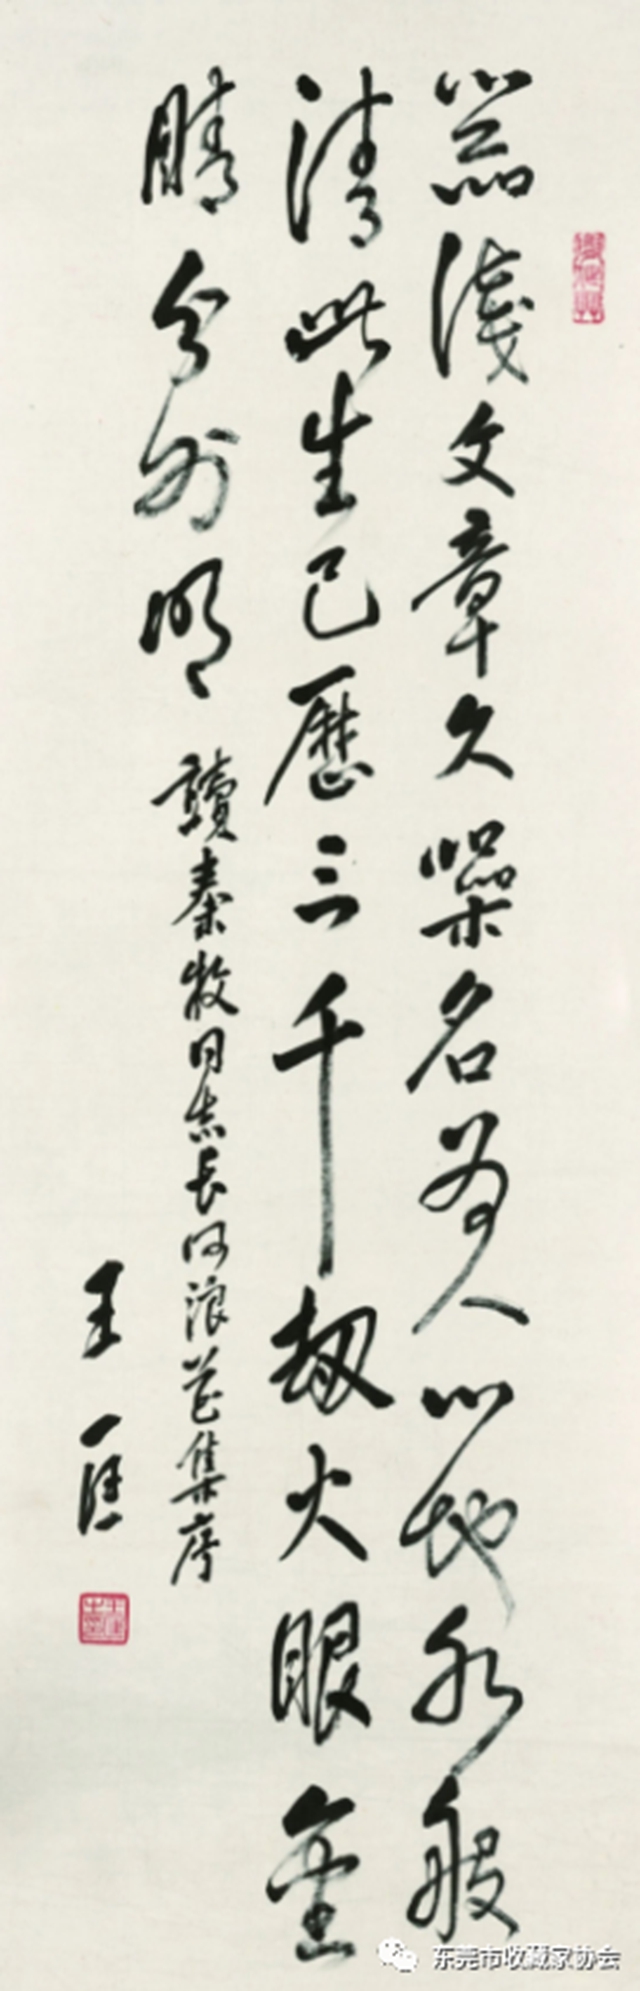 器淺文章久噪名為人心地水般
清此生已歷三千劫火眼金
睛分外明 讀秦牧同志长河浪花集序
王匡
东莞市收藏家协会